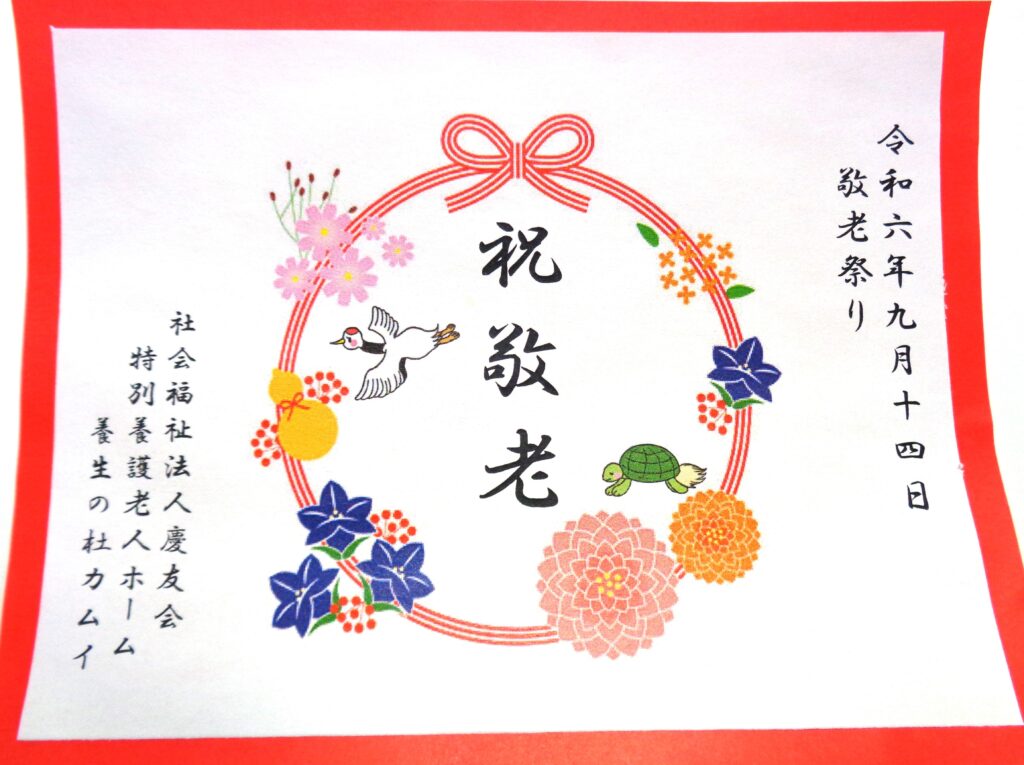 令和六年九月十四日
敬老祭り
祝敬老
社会福祉法人慶友会
特別養護老人ホーム
養生の杜カムイ